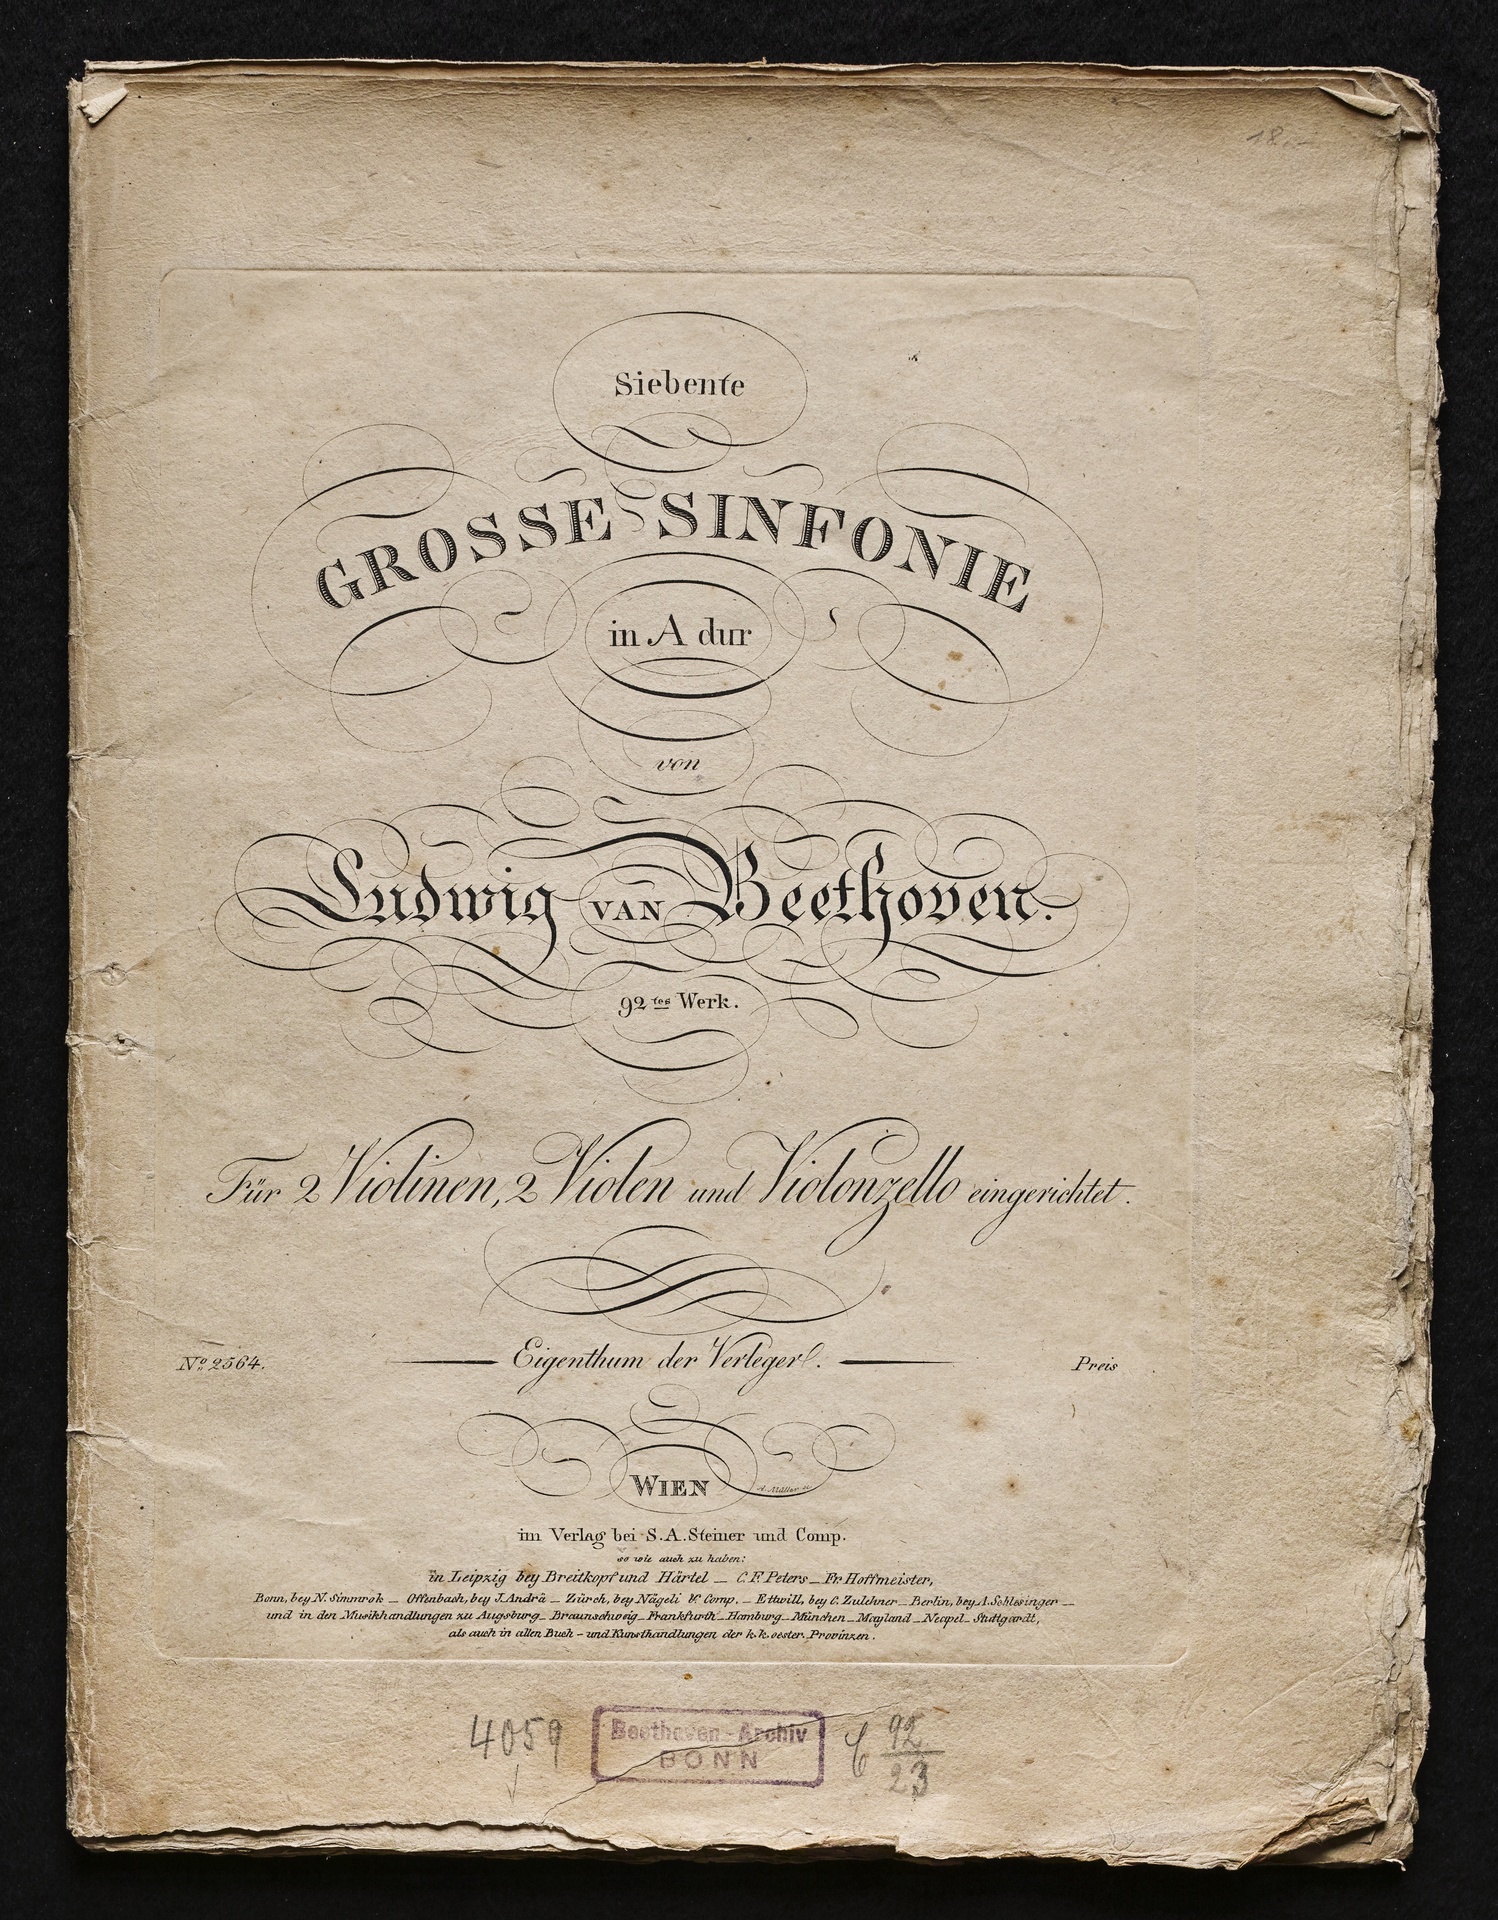 18.–
Siebente
GROSSE SINFONIE
in A dur
von
Ludwig VAN Beethoven.
92tes Werk.
Für 2 Violinen, 2 Violen und Violonzello eingerichtet.
No 2564.
Eigenthum der Verleger.
Preis
WIEN
A. Müller sc
im Verlag bei S. A. Steiner und Comp.
so wie auch zu haben:
in Leipzig bey Breitkopf und Härtel _ C. F. Peters _ Fr. Hoffmeister,
Bonn, bey N. Simmrok _ Offenbach, bey J. André _ Zürch, bey Nägeli & Comp. _ Ettwill, bey C. Zulehner _ Berlin, bey A. Schlesinger _
und in den Musikhandlungen zu Augsburg _ Braunschweig _ Frankfurth _ Hamburg _ München _ Mayland _ Neapel _ Stuttgardt,
als auch in allen Buch - und Kunsthandlungen der k. k. oester. Provinzen.
4059
Beethoven-Archiv
BONN
C 92
23